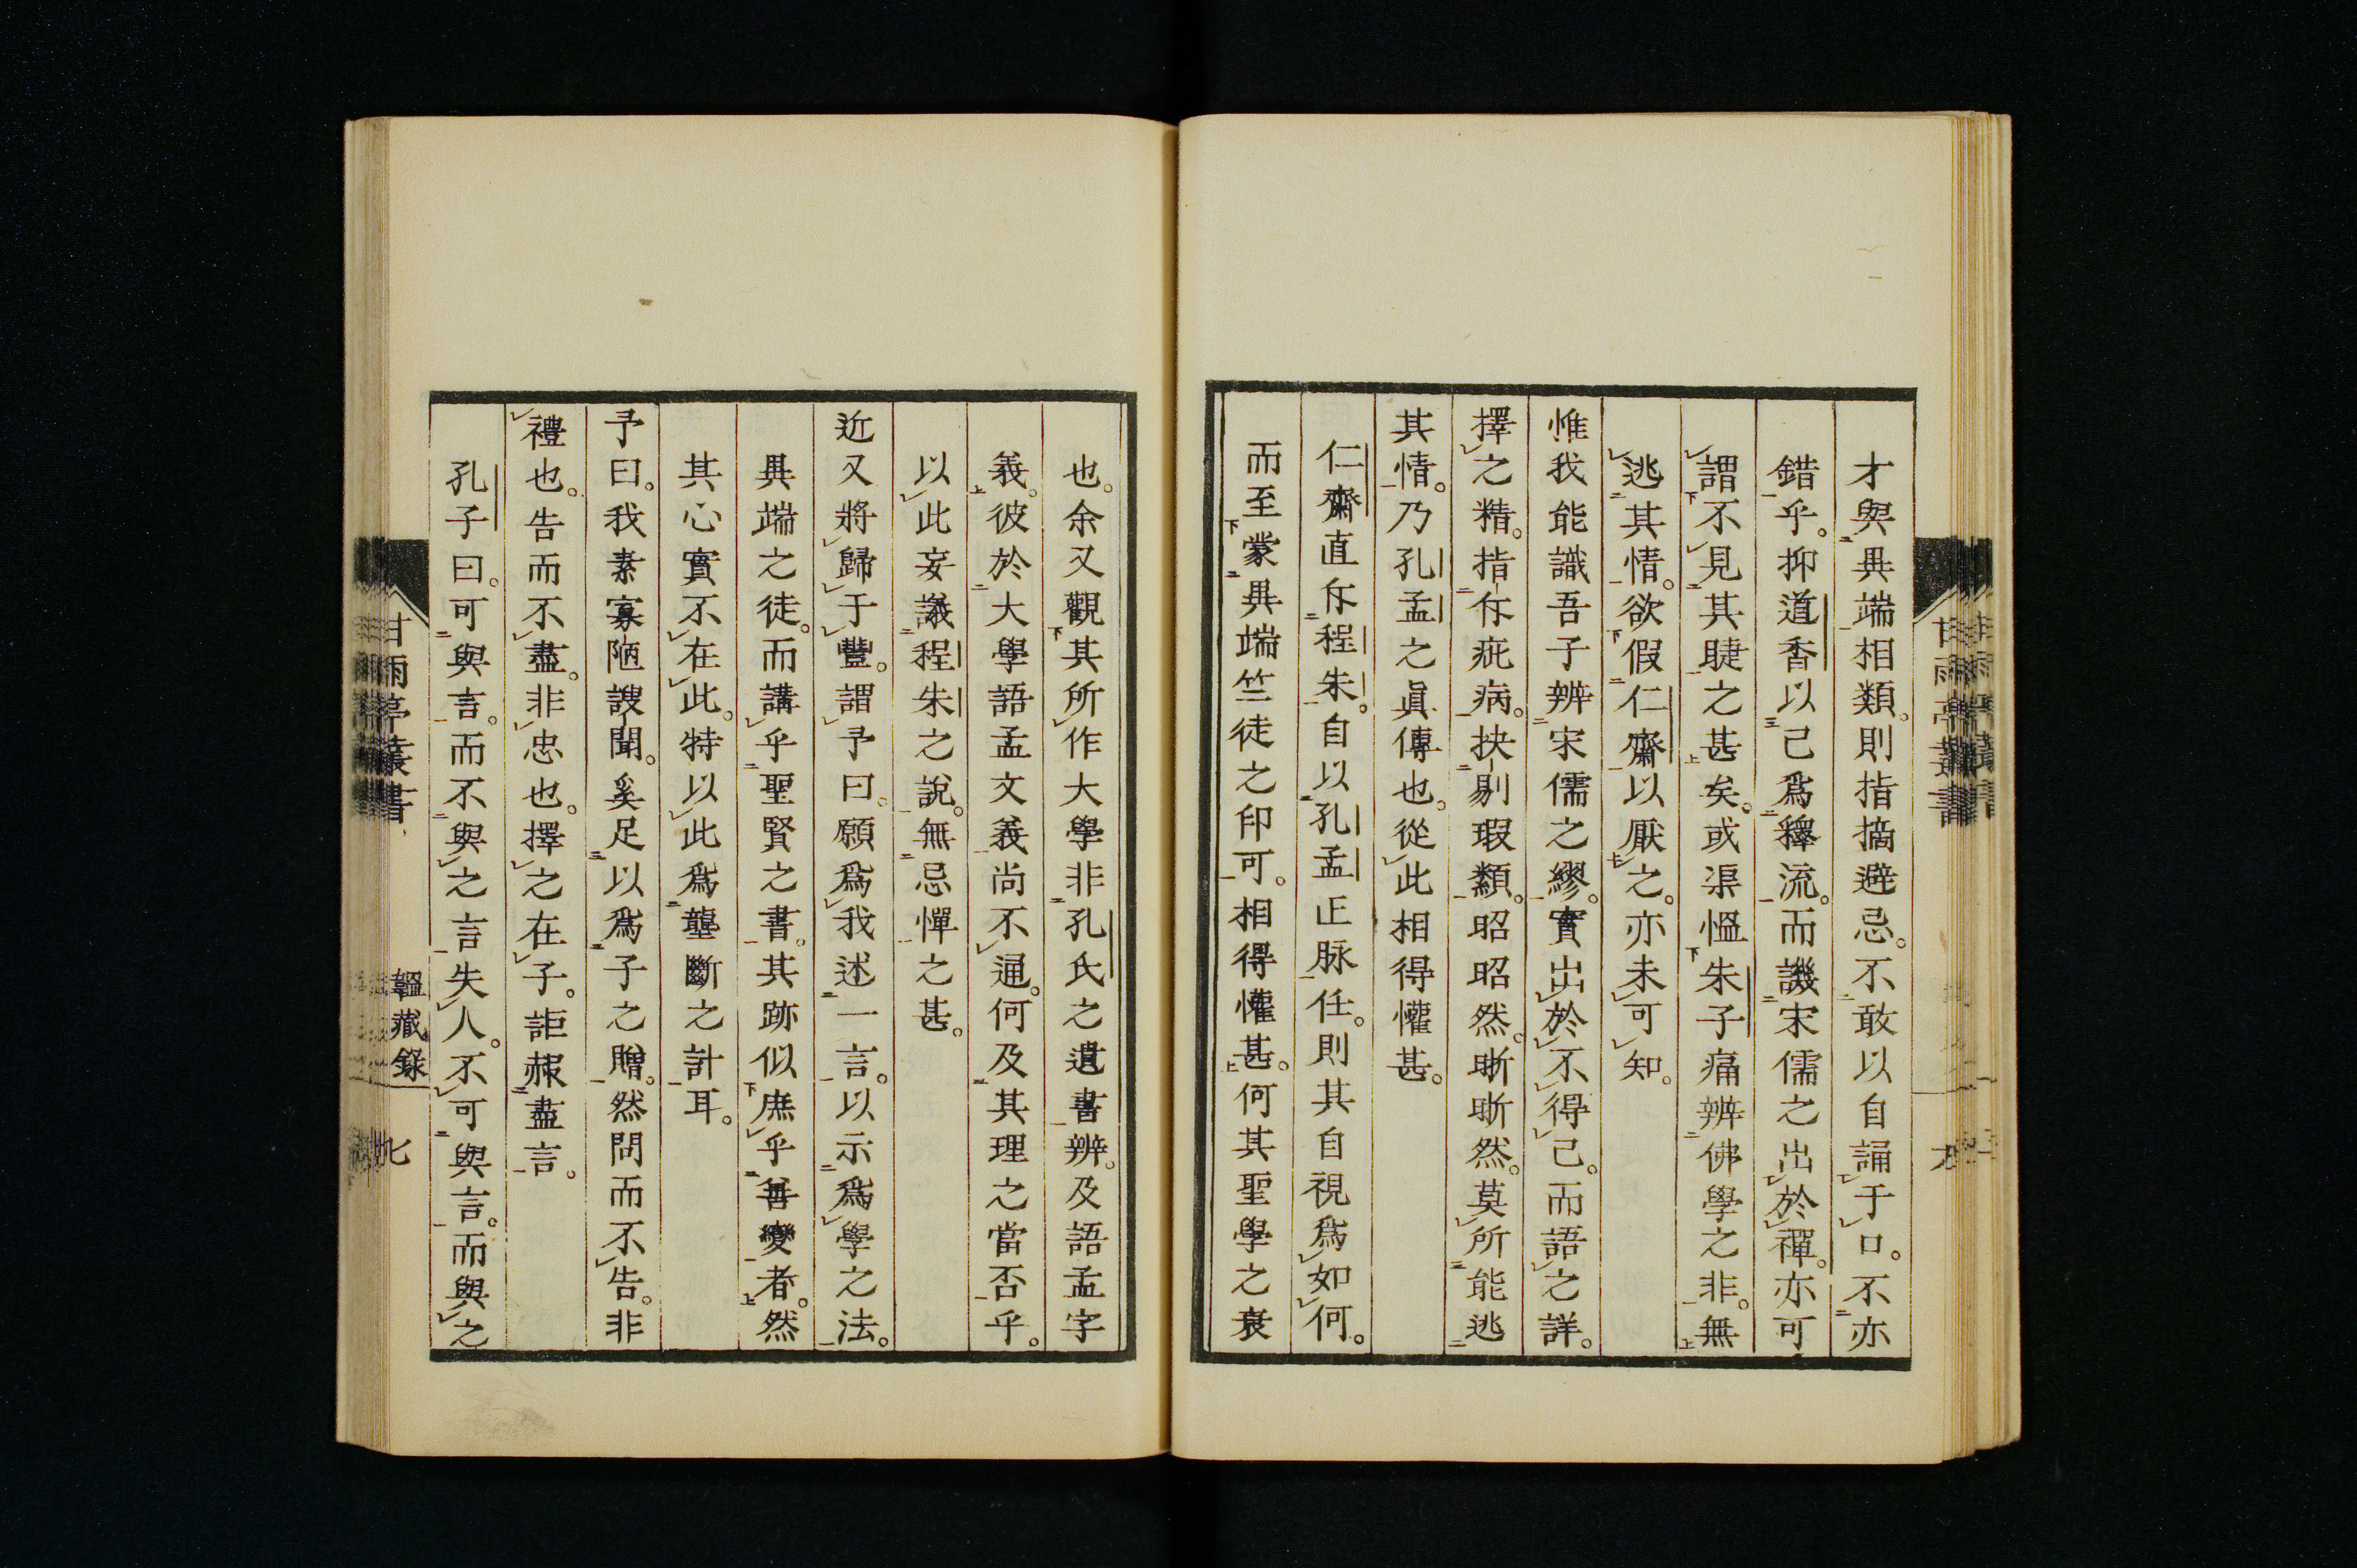 才與異端相類。則指摘避忌。不敢以自誦于口。不亦
錯乎。抑道香以己爲釋流。而譏宋儒之出於禪。亦可
謂不見其睫之甚矣。或渠慍朱子痛辨佛學之非。無
逃其情。欲假仁齋以厭之。亦未可知。
惟我能識吾子辨宋儒之繆。實出於不得已。而語之詳。
擇之精。指斥疵病。抉剔瑕纇。昭昭然。晣晣然。莫所能逃
其情。乃孔孟之眞傳也。從此相得懽甚。
仁齋直斥程朱。自以孔孟正脉任。則其自視爲如何。
而至蒙異端竺徒之印可。相得懽甚。何其聖學之衰
也。余又觀其所作大學非孔氏之遺書辨。及語孟字
義。彼於大學語孟文義尚不通。何及其理之當否乎。
以此妄議程朱之說。無忌憚之甚。
近又將歸于豐。謂予曰。願爲我述一言。以示爲學之法。
異端之徒。而講乎聖賢之書。其跡似庶乎善變者。然
其心實不在此。特以此爲壟斷之計耳。
予曰。我素寡陋謏聞。奚足以爲子之贈。然問而不告。非
禮也。告而不盡。非忠也。擇之在子。詎赧盡言。
孔子曰。可與言。而不與之言失人。不可與言。而與之
甘雨亭叢書
韞藏錄
九
甘雨亭叢書